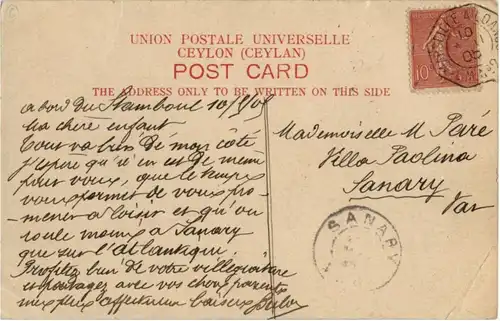 UNION POSTALE UNIVERSELLE
CEYLON (CEYLAN)
POST CARD
THE ADDRESS ONLY TO BE WRITTEN ON THIS SIDE
a bord du Stamboul 10/1/05
Ma chère enfant
Tout va bien de mon côté
j'espère qu'il en est de même
pour vous, que le temps
vous permet de vous pro-
mener à loisir et qu'on
roule moins à Sanary
que sur l'Atlantique
Profitez bien de votre villégiature
et partagez avec vos chers parents
mes plus affectueux baisers
Mademoiselle M Paré
Villa Paolina
Sanary
Var
SANARY
10